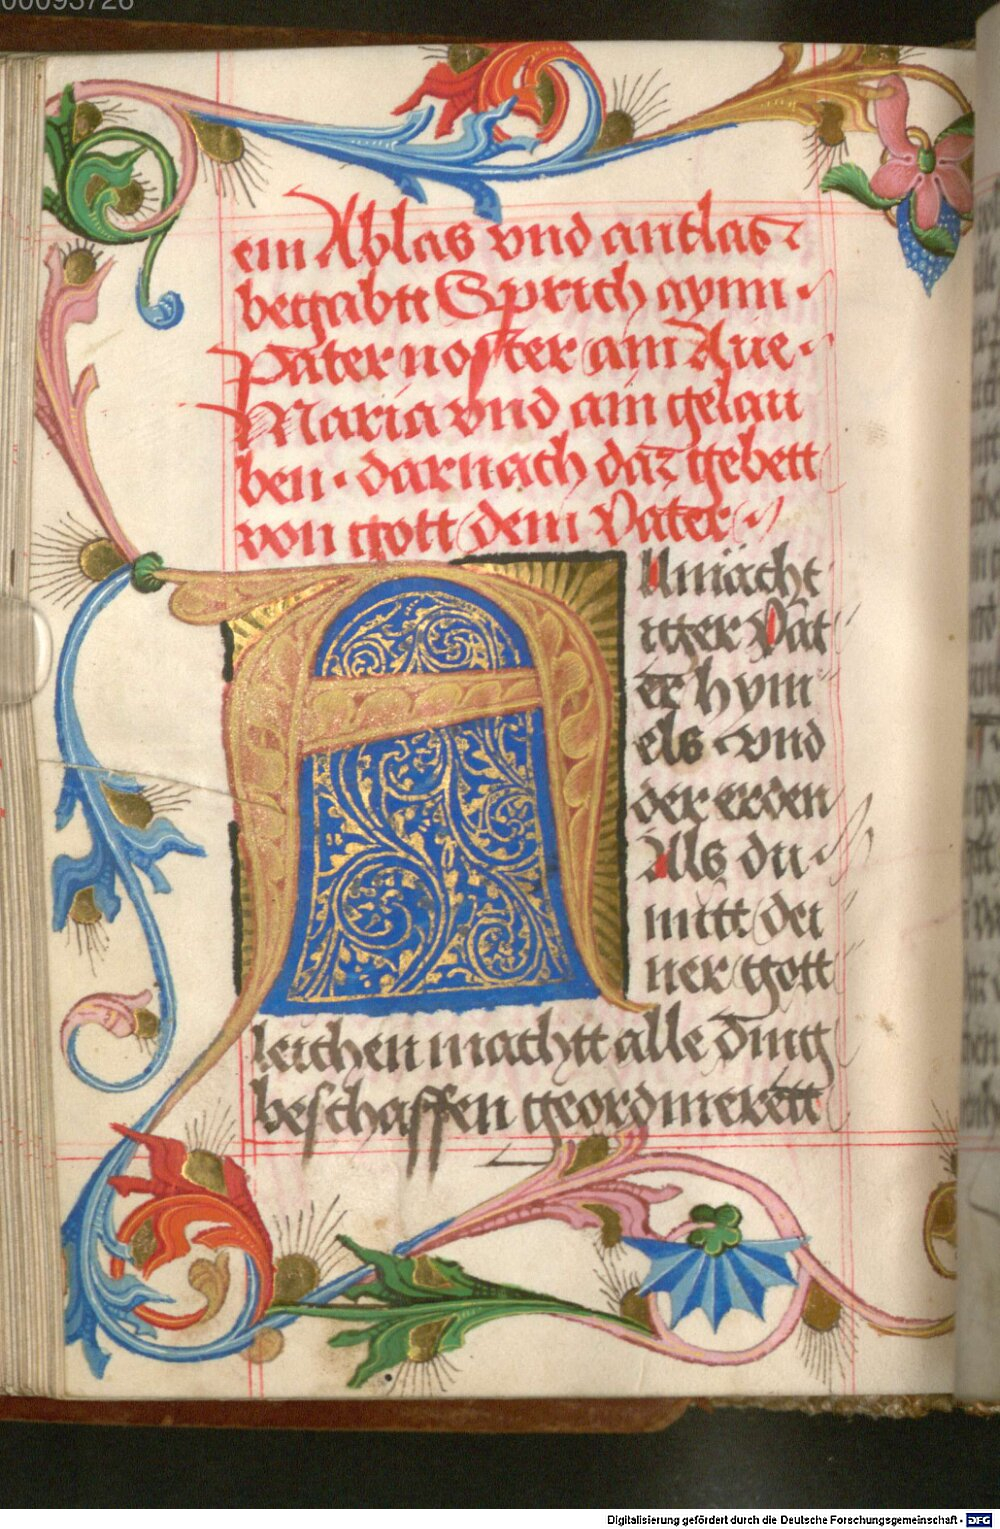 00093726
ein Ablas vnd antlas
begabtt Sprich aynn
Pater noster ain Aue
Maria vnd ain gelau
ben · darnach daz gebett
von gott dem Vater
Almächt
iger Vat
er hym
els vnd
der erden
Als du
mitt dei
ner gott
leichen machtt alle ding
beschaffen geordinierett
Digitalisierung gefördert durch die Deutsche Forschungsgemeinschaft - DFG